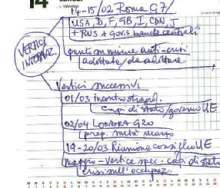 14
14-15/02 Roma G7
USA, D, F, GB, I, CDN, J
+ RUS + gov. banche centrali
VERTICI
INTERNAZ.
punti in comune anti-crisi
adottate da adottare
Vertici successivi
01/03 incontro straord.
Capi di Stato/governo UE
02/04 LONDRA G20
prep. metà marzo
19-20/03 Riunione consiglio UE
maggio - Vertice spec. - capi di stato
crisi sull'occupaz.